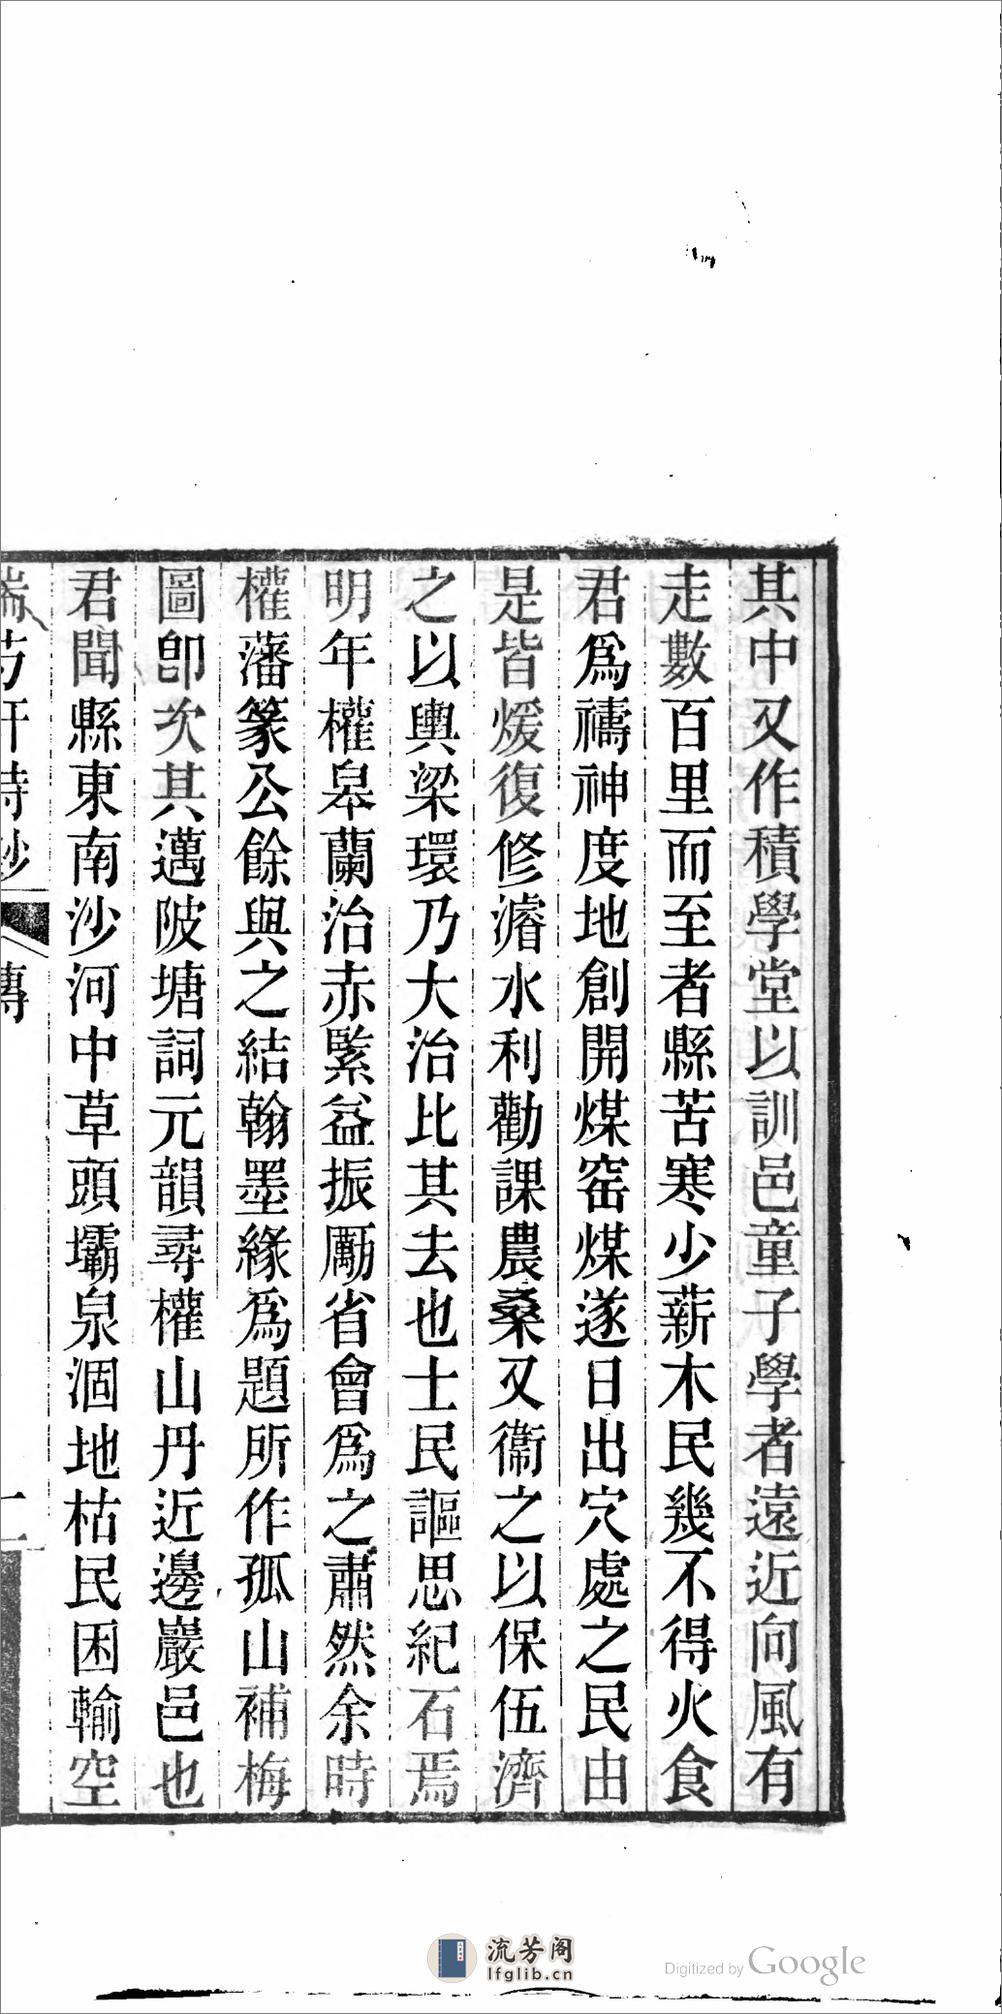 其中又作積學堂以訓邑童子學者遠近向風有
走數百里而至者縣苦寒少薪木民幾不得火食
君爲禱神度地創開煤窑煤遂日出穴處之民由
是皆煖復修濬水利勸課農桑又衞之以保伍濟
之以輿梁環乃大治比其去也士民謳思紀石焉
明年權皋蘭治赤緊益振勵省會爲之肅然余時
權藩篆公餘與之結翰墨緣爲題所作孤山補梅
圖卽次其邁陂塘詞元韻尋權山丹近邊巖邑也
君聞縣東南沙河中草頭壩泉涸地枯民困輸空
傳
流芳阁
lfglib.cn
Digitized by Google